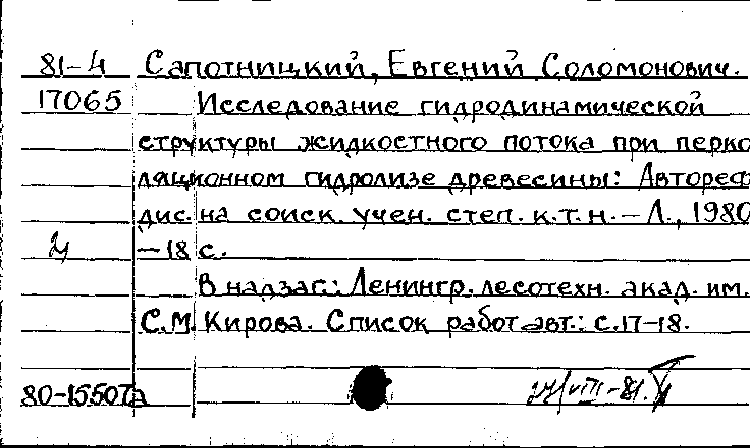 81-4 Сапотницкий, Евгений Соломонович.
17065 Исследование гидродинамической
структуры жидкостного потока при перко
ляционном гидролизе древесины: Автореф
дис. на соиск. учен. степ. к.т.н. – Л., 1980
– 18 с.
В надзаг.: Ленингр. лесотехн. акад. им.
С.М. Кирова. Список работ авт.: с.17-18.
80-15507а